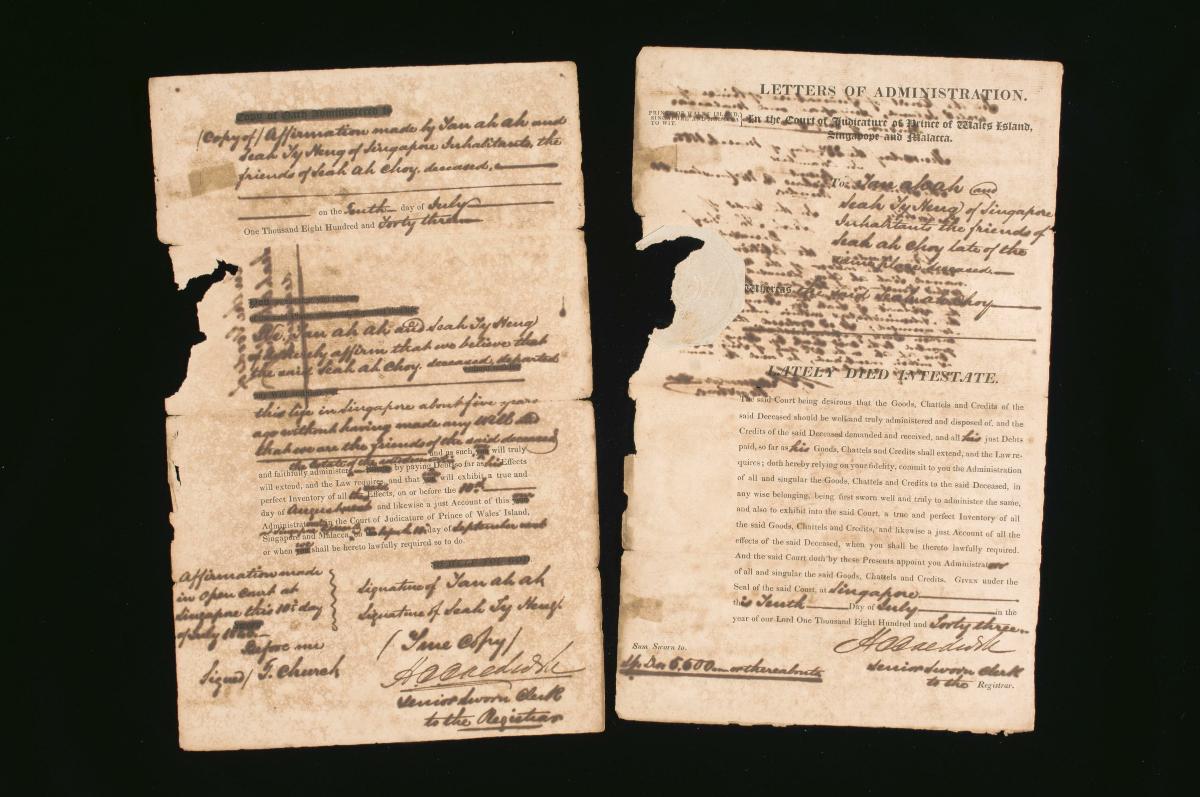 Copy of Oath Administered
(Copy of) Affirmation made by Tan ah Ah and
Seah Ty Heng of Singapore Inhabitants, the
friends of Seah Ah Choy, deceased,
on the Tenth day of July
One Thousand Eight Hundred and Forty three
We, Tan ah Ah and Seah Ty Heng
affirm that we believe that
the said Seah Ah Choy, deceased, departed
this life in Singapore about five years
ago without having made any Will and
that we are the friends of the said deceased
and as such will truly
and faithfully administer by paying Debts so far as his Effects
will extend, and the Law requires, and that will exhibit a true and
perfect Inventory of all the Effects, on or before the 10th
day of August next and likewise a just Account of this
Administration in the Court of Judicature of Prince of Wales' Island,
Singapore and Malacca, day of September next
or when we shall be hereto lawfully required so to do.
Affirmation made
in Open Court at
Singapore this 10th day
of July
Before me
Signed/ T. Church
Signature of Tan ah ah
Signature of Seah Ty Heng
(True Copy)
Senior Sworn Clerk
to the Registrar
LETTERS OF ADMINISTRATION.
PRINCE OF WALES ISLAND,
SINGAPORE AND MALACCA
TO WIT.
In the Court of Judicature of Prince of Wales Island,
Singapore and Malacca.
To Tan ah ah and
Seah Ty Heng of Singapore
Inhabitants the friends of
Seah ah Choy late of the
same place deceased
Whereas the said Seah ah Choy
LATELY DIED INTESTATE.
The said Court being desirous that the Goods, Chattels and Credits of the
said Deceased should be well and truly administered and disposed of, and the
Credits of the said Deceased demanded and received, and all his just Debts
paid, so far as his Goods, Chattels and Credits shall extend, and the Law re-
quires; doth hereby relying on your fidelity, commit to you the Administration
of all and singular the Goods, Chattels and Credits to the said Deceased, in
any wise belonging, being first sworn well and truly to administer the same,
and also to exhibit into the said Court, a true and perfect Inventory of all
the said Goods, Chattels and Credits, and likewise a just Account of all the
effects of the said Deceased, when you shall be thereto lawfully required.
And the said Court doth by these Presents appoint you Administrator
of all and singular the said Goods, Chattels and Credits. GIVEN under the
Seal of the said Court, at Singapore
this Tenth Day of July in the
year of our Lord One Thousand Eight Hundred and Forty three
Sum Sworn to.
Sp Drs 5,500 or thereabouts
Senior Sworn Clerk
to the Registrar.